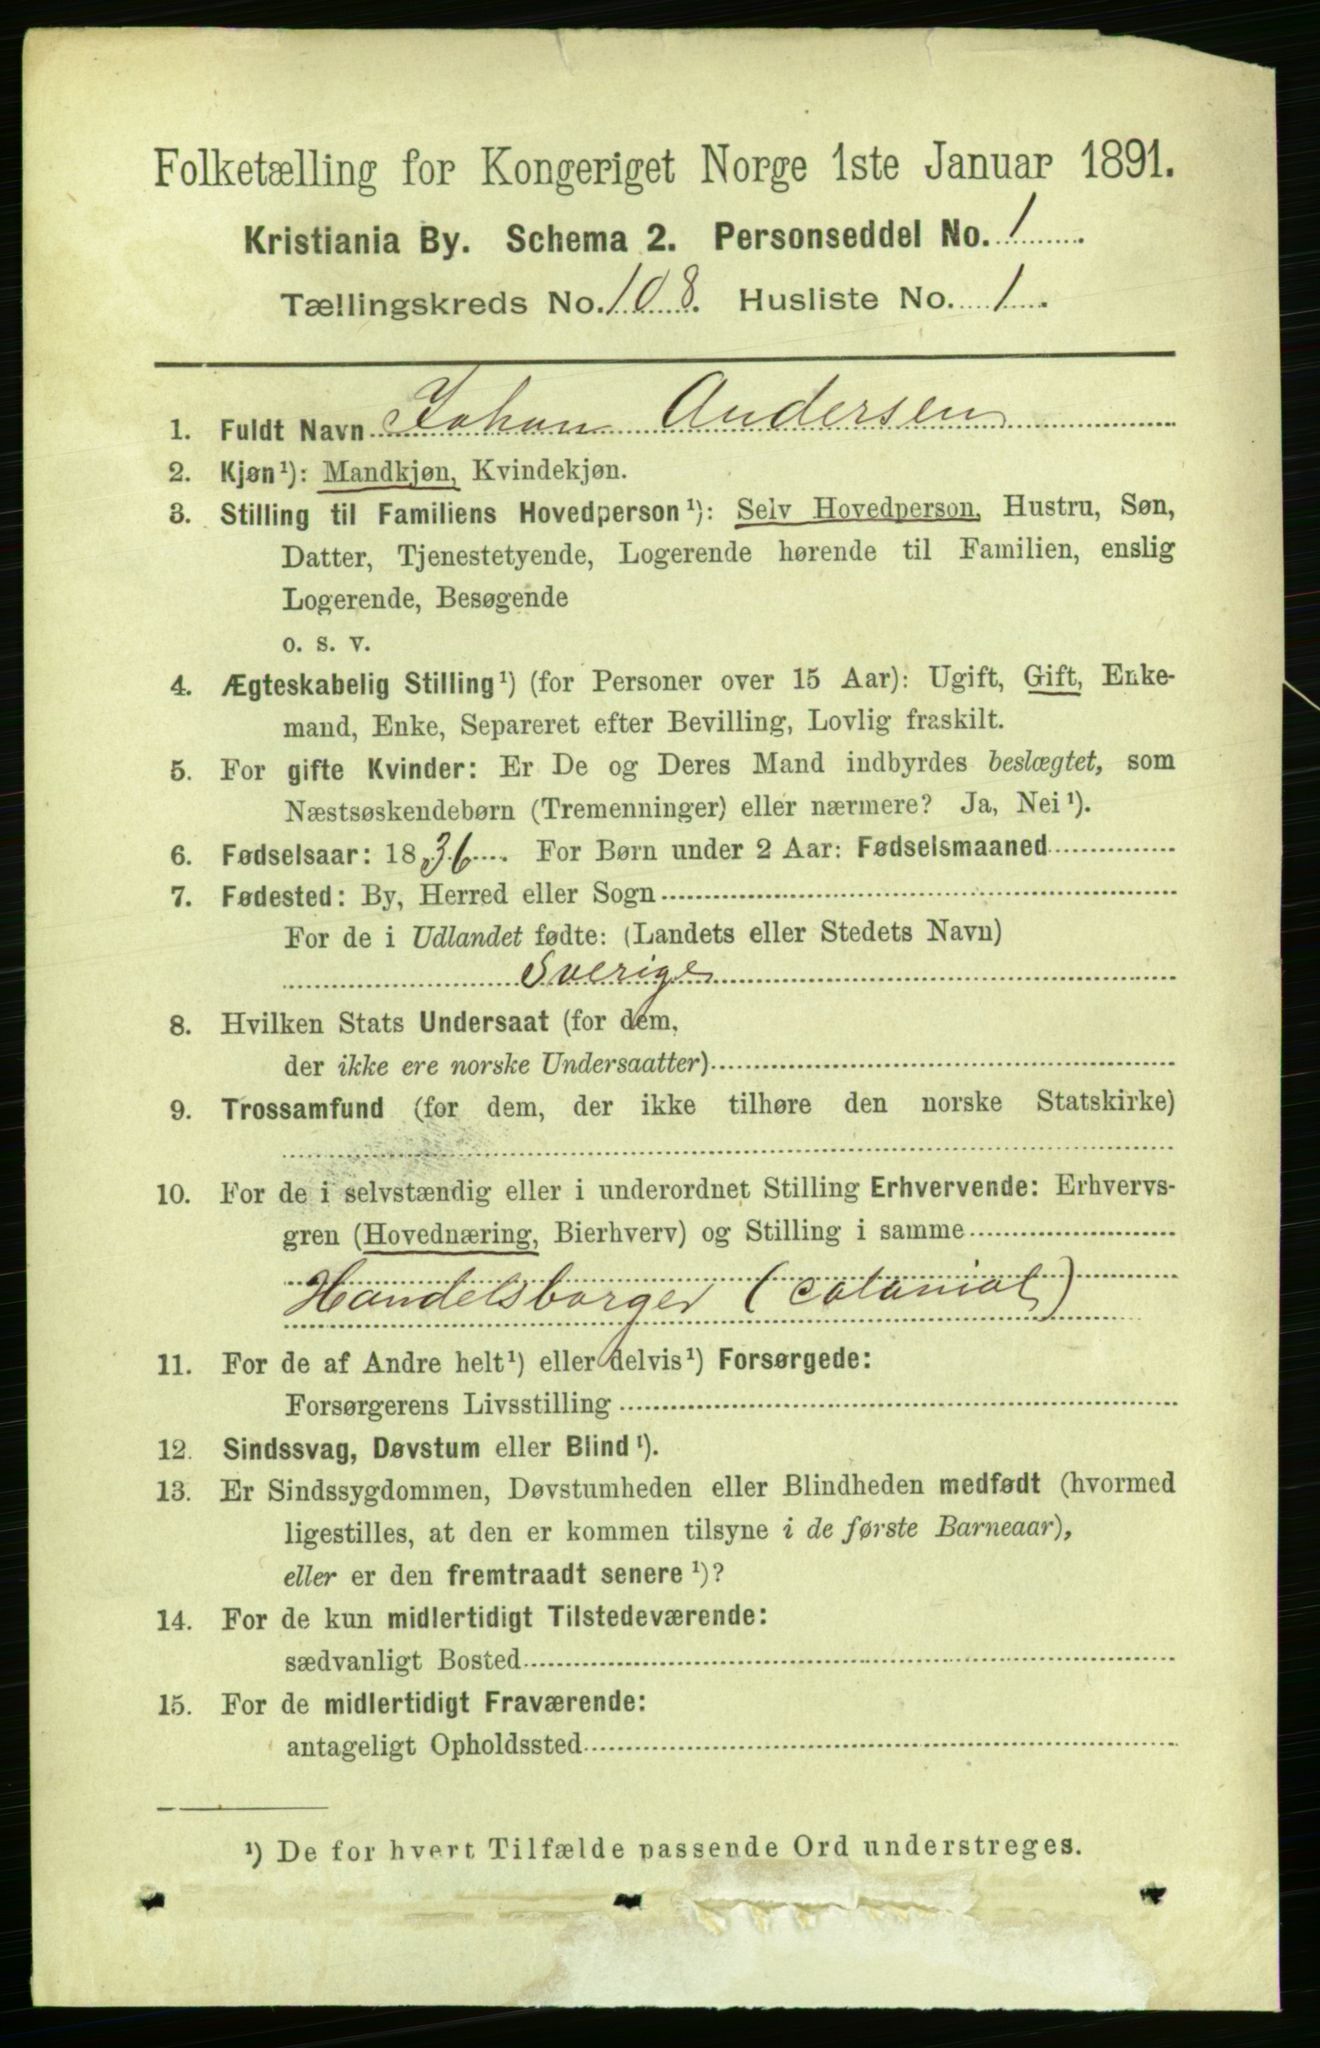 Folketælling for Kongeriget Norge 1ste Januar 1891.
Kristiania By. Schema 2. Personseddel No. 1
Tællingskreds No. 108. Husliste No. 1.
1. Fuldt Navn Johan Andersen
2. Kjøn¹): Mandkjøn, Kvindekjøn.
3. Stilling til Familiens Hovedperson¹): Selv Hovedperson, Hustru, Søn,
Datter, Tjenestetyende, Logerende hørende til Familien, enslig
Logerende, Besøgende
o. s. v.
4. Ægteskabelig Stilling¹) (for Personer over 15 Aar): Ugift, Gift, Enke-
mand, Enke, Separeret efter Bevilling, Lovlig fraskilt.
5. For gifte Kvinder: Er De og Deres Mand indbyrdes beslægtet, som
Næstsøskendebørn (Tremenninger) eller nærmere? Ja, Nei¹).
6. Fødselsaar: 1836. For Børn under 2 Aar: Fødselsmaaned
7. Fødested: By, Herred eller Sogn
For de i Udlandet fødte: (Landets eller Stedets Navn)
Sverige
8. Hvilken Stats Undersaat (for dem,
der ikke ere norske Undersaatter)
9. Trossamfund (for dem, der ikke tilhøre den norske Statskirke)
10. For de i selvstændig eller i underordnet Stilling Erhvervende: Erhvervs-
gren (Hovednæring, Bierhverv) og Stilling i samme
Handelsborger (colonial)
11. For de af Andre helt¹) eller delvis¹) Forsørgede:
Forsørgerens Livsstilling
12. Sindssvag, Døvstum eller Blind¹).
13. Er Sindssygdommen, Døvstumheden eller Blindheden medfødt (hvormed
ligestilles, at den er kommen tilsyne i de første Barneaar),
eller er den fremtraadt senere¹)?
14. For de kun midlertidigt Tilstedeværende:
sædvanligt Bosted
15. For de midlertidigt Fraværende:
antageligt Opholdssted
¹) De for hvert Tilfælde passende Ord understreges.